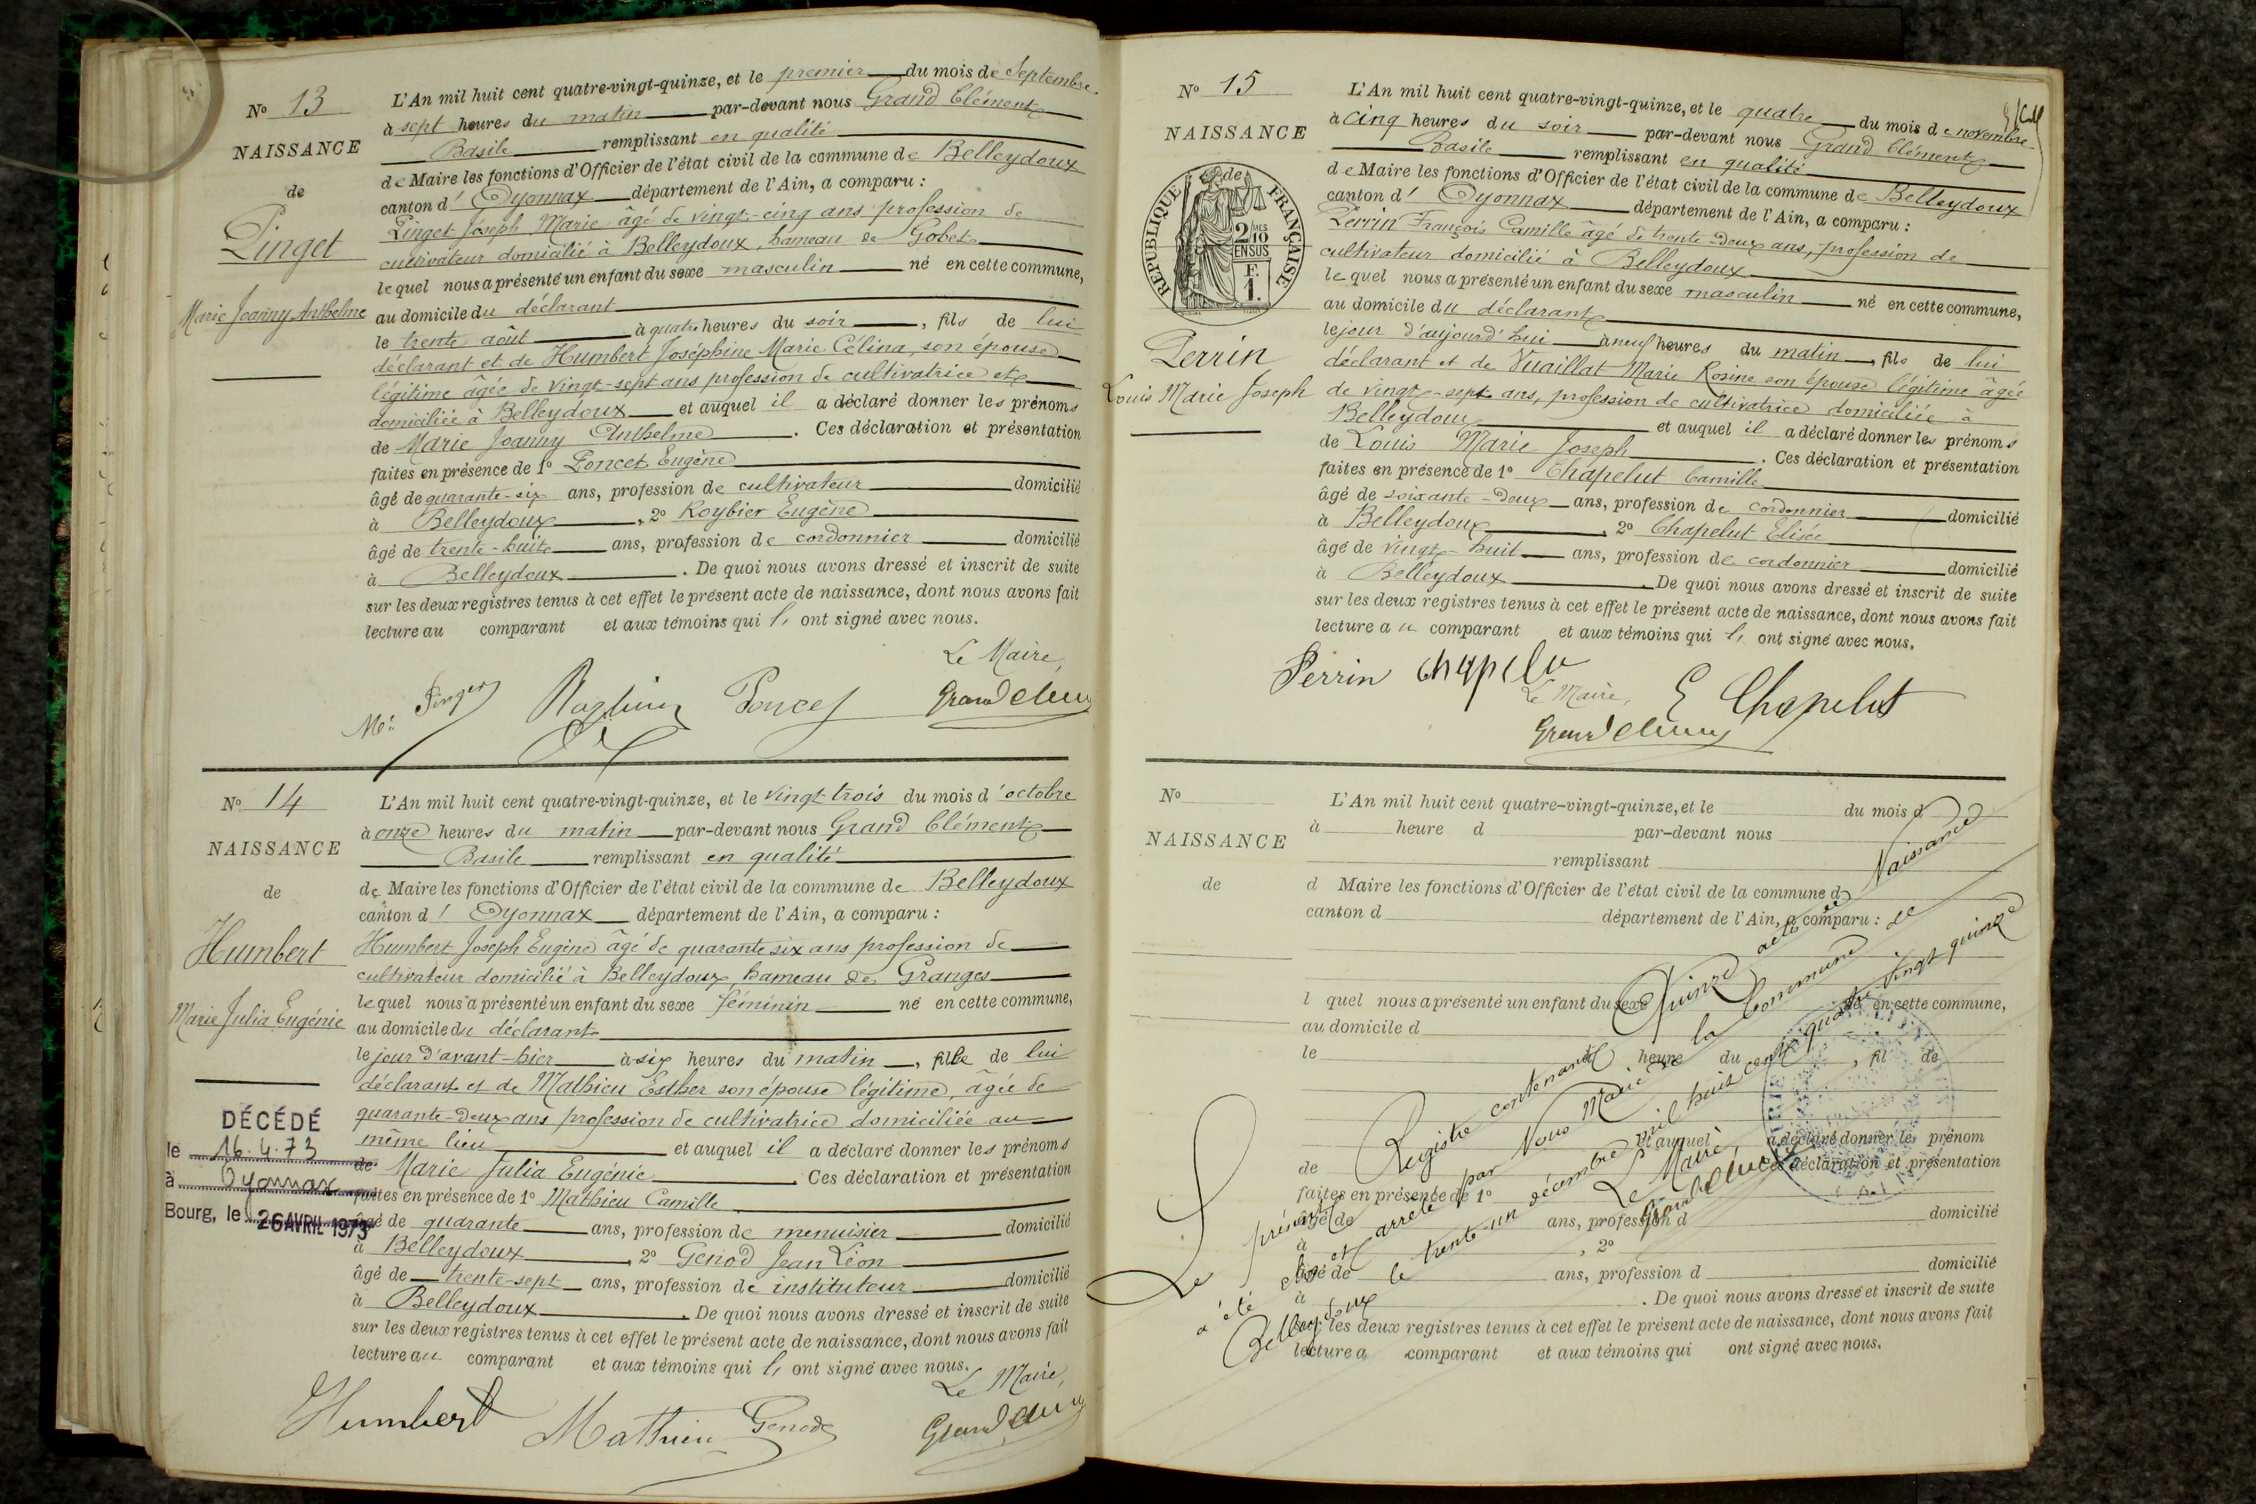 N° 13
NAISSANCE
de
Pinget
Marie Joanny Anthelme
L'An mil huit cent quatre-vingt-quinze, et le premier du mois de Septembre
à sept heures du matin par-devant nous Grand Clément
Basile remplissant en qualité
de Maire les fonctions d'Officier de l'état civil de la commune de Belleydoux
canton d' Oyonnax département de l'Ain, a comparu :
Pinget Joseph Marie âgé de vingt-cinq ans profession de
cultivateur domicilié à Belleydoux, hameau de Gobet
lequel nous a présenté un enfant du sexe masculin né en cette commune,
au domicile du déclarant
le trente août à quatre heures du soir, fils de lui
déclarant et de Humbert Joséphine Marie Célina, son épouse
légitime âgée de vingt-sept ans profession de cultivatrice et
domiciliée à Belleydoux et auquel il a déclaré donner les prénoms
de Marie Joanny Anthelme. Ces déclaration et présentation
faites en présence de 1° Poncet Eugène
âgé de quarante-six ans, profession de cultivateur domicilié
à Belleydoux, 2° Roybier Eugène
âgé de trente-huit ans, profession de cordonnier domicilié
à Belleydoux. De quoi nous avons dressé et inscrit de suite
sur les deux registres tenus à cet effet le présent acte de naissance, dont nous avons fait
lecture au comparant et aux témoins qui ont signé avec nous.
Le Maire,
Pinget Poncet Grand Clément
N° 14
NAISSANCE
de
Humbert
Marie Julia Eugénie
DÉCÉDÉ
le 16.4.73
à Oyonnax
Bourg, le 26 AVRIL 1973
L'An mil huit cent quatre-vingt-quinze, et le vingt-trois du mois d'octobre
à onze heures du matin par-devant nous Grand Clément
Basile remplissant en qualité
de Maire les fonctions d'Officier de l'état civil de la commune de Belleydoux
canton d' Oyonnax département de l'Ain, a comparu :
Humbert Joseph Eugène âgé de quarante six ans profession de
cultivateur domicilié à Belleydoux, hameau des Granges
lequel nous a présenté un enfant du sexe féminin né en cette commune,
au domicile du déclarant
le jour d'avant-hier à six heures du matin, fille de lui
déclarant et de Mathieu Esther son épouse légitime, âgée de
quarante-deux ans profession de cultivatrice domiciliée au
même lieu et auquel il a déclaré donner les prénoms
de Marie Julia Eugénie. Ces déclaration et présentation
faites en présence de 1° Mathieu Camille
âgé de quarante ans, profession de menuisier domicilié
à Belleydoux, 2° Genod Jean Léon
âgé de trente-sept ans, profession de instituteur domicilié
à Belleydoux. De quoi nous avons dressé et inscrit de suite
sur les deux registres tenus à cet effet le présent acte de naissance, dont nous avons fait
lecture au comparant et aux témoins qui ont signé avec nous.
Le Maire,
Humbert Mathieu Genod Grand Clément
N° 15
NAISSANCE
de
RÉPUBLIQUE FRANÇAISE
2/10 MES
EN SUS
F.
1.
Perrin
Louis Marie Joseph
L'An mil huit cent quatre-vingt-quinze, et le quatre du mois de novembre
à cinq heures du soir par-devant nous Grand Clément
Basile remplissant en qualité
de Maire les fonctions d'Officier de l'état civil de la commune de Belleydoux
canton d' Oyonnax département de l'Ain, a comparu :
Perrin François Camille âgé de trente-deux ans, profession de
cultivateur domicilié à Belleydoux
lequel nous a présenté un enfant du sexe masculin né en cette commune,
au domicile du déclarant
le jour d'aujourd'hui à neuf heures du matin, fils de lui
déclarant et de Vuaillat Marie Rosine son épouse légitime âgée
de vingt-sept ans, profession de cultivatrice domiciliée à
Belleydoux et auquel il a déclaré donner les prénoms
de Louis Marie Joseph. Ces déclaration et présentation
faites en présence de 1° Chapelut Camille
âgé de soixante-deux ans, profession de cordonnier domicilié
à Belleydoux, 2° Chapelut Elisée
âgé de vingt-huit ans, profession de cordonnier domicilié
à Belleydoux. De quoi nous avons dressé et inscrit de suite
sur les deux registres tenus à cet effet le présent acte de naissance, dont nous avons fait
lecture au comparant et aux témoins qui ont signé avec nous.
Perrin Chapelu
Le Maire, E Chapelut
Grand Clément
N°
NAISSANCE
de
L'An mil huit cent quatre-vingt-quinze, et le du mois d
à heure d par-devant nous
remplissant
d Maire les fonctions d'Officier de l'état civil de la commune d
canton d département de l'Ain, a comparu :
l quel nous a présenté un enfant du sexe né en cette commune,
au domicile d
le heure du , fil de
et auquel a déclaré donner les prénom
de Ces déclaration et présentation
faites en présence de 1°
âgé de ans, profession d domicilié
à , 2°
âgé de ans, profession d domicilié
à . De quoi nous avons dressé et inscrit de suite
sur les deux registres tenus à cet effet le présent acte de naissance, dont nous avons fait
lecture a comparant et aux témoins qui ont signé avec nous.
Le présent Registre contenant Quinze actes de Naissance
a été clos et arrêté par Nous Maire de la Commune de
Belleydoux le trente-un décembre mil huit cent quatre vingt quinze
Le Maire,
Grand Clément